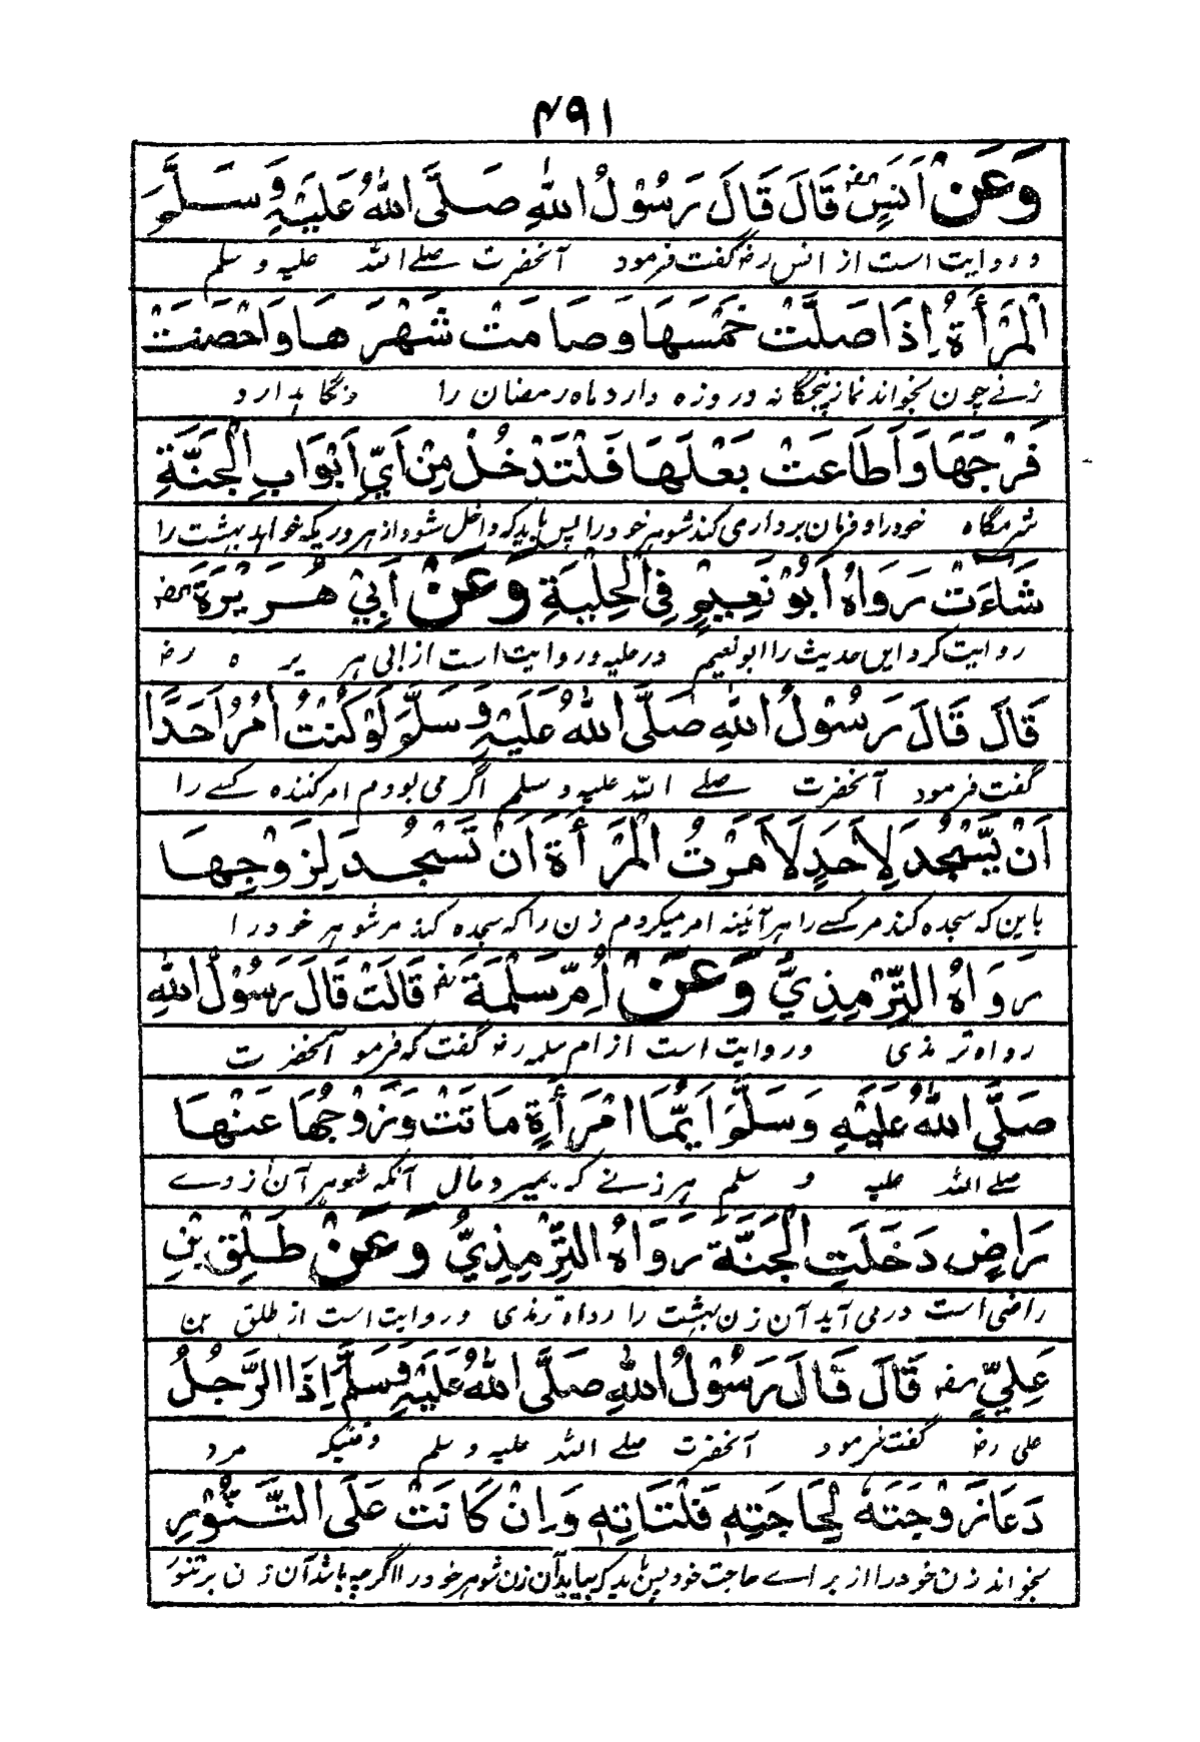 ۴۹۱
وَعَنْ اَنَسٍ رض قَالَ قَالَ رَسُوْلُ اللهِ صَلَّى اللهُ عَلَيْهِ وَسَلَّمَ
و روایت است از انس رض گفت فرمود آنحضرت صلے اللہ علیہ و سلم
اَلْمَرْأَةُ اِذَا صَلَّتْ خَمْسَهَا وَصَامَتْ شَهْرَهَا وَاَحْصَنَتْ
زنے چون بخواند نماز پنجگانہ و روزہ دارد ماہ رمضان را و نگاہدارد
فَرْجَهَا وَاَطَاعَتْ بَعْلَهَا فَلْتَدْخُلْ مِنْ اَيِّ اَبْوَابِ الْجَنَّةِ
شرمگاہ خود را و فرمان برداری کند شوہر خود را پس باید کہ داخل شود از ہر در یکہ خواہد بہشت را
شَاءَتْ رَوَاهُ اَبُوْ نَعِيْمٍ فِي الْحِلْيَةِ وَعَنْ اَبِيْ هُرَيْرَةَ رض
روایت کرد این حدیث را ابو نعیم در حلیہ و روایت است از ابی ہریرہ رض
قَالَ قَالَ رَسُوْلُ اللهِ صَلَّى اللهُ عَلَيْهِ وَسَلَّمَ لَوْ كُنْتُ اٰمُرُ اَحَدًا
گفت فرمود آنحضرت صلے اللہ علیہ و سلم اگر می بودم امر کنندہ کسے را
اَنْ يَّسْجُدَ لِاَحَدٍ لَاَمَرْتُ الْمَرْأَةَ اَنْ تَسْجُدَ لِزَوْجِهَا
باین کہ سجدہ کند مر کسے را ہر آئینہ امر میکردم زن را کہ سجدہ کند مر شوہر خود را
رَوَاهُ التِّرْمِذِيُّ وَعَنْ اُمِّ سَلْمَةَ رض قَالَتْ قَالَ رَسُوْلُ اللهِ
رواہ ترمذی و روایت است از ام سلمہ رض گفت کہ فرمو آنحضرت
صَلَّى اللهُ عَلَيْهِ وَسَلَّمَ اَيُّمَا امْرَأَةٍ مَاتَتْ وَزَوْجُهَا عَنْهَا
صلے اللہ علیہ و سلم ہر زنے کہ بمیرد و حال آنکہ شوہر آن از وے
رَاضٍ دَخَلَتِ الْجَنَّةَ رَوَاهُ التِّرْمِذِيُّ وَعَنْ طَلْقِ بْنِ
راضی است در می آید آن زن بہشت را رواہ ترمذی و روایت است از طلق بن
عَلِيٍّ رض قَالَ قَالَ رَسُوْلُ اللهِ صَلَّى اللهُ عَلَيْهِ وَسَلَّمَ اِذَا الرَّجُلُ
علی رض گفت فرمود آنحضرت صلے اللہ علیہ و سلم وقتیکہ مرد
دَعَا زَوْجَتَهُ لِحَاجَتِهٖ فَلْتَاْتِهٖ وَاِنْ كَانَتْ عَلَى التَّنُّوْرِ
بخواند زن خود را از براے حاجت خود پس باید کہ بیاید آن زن شوہر خود را اگرچہ باشد آن زن بر تنور